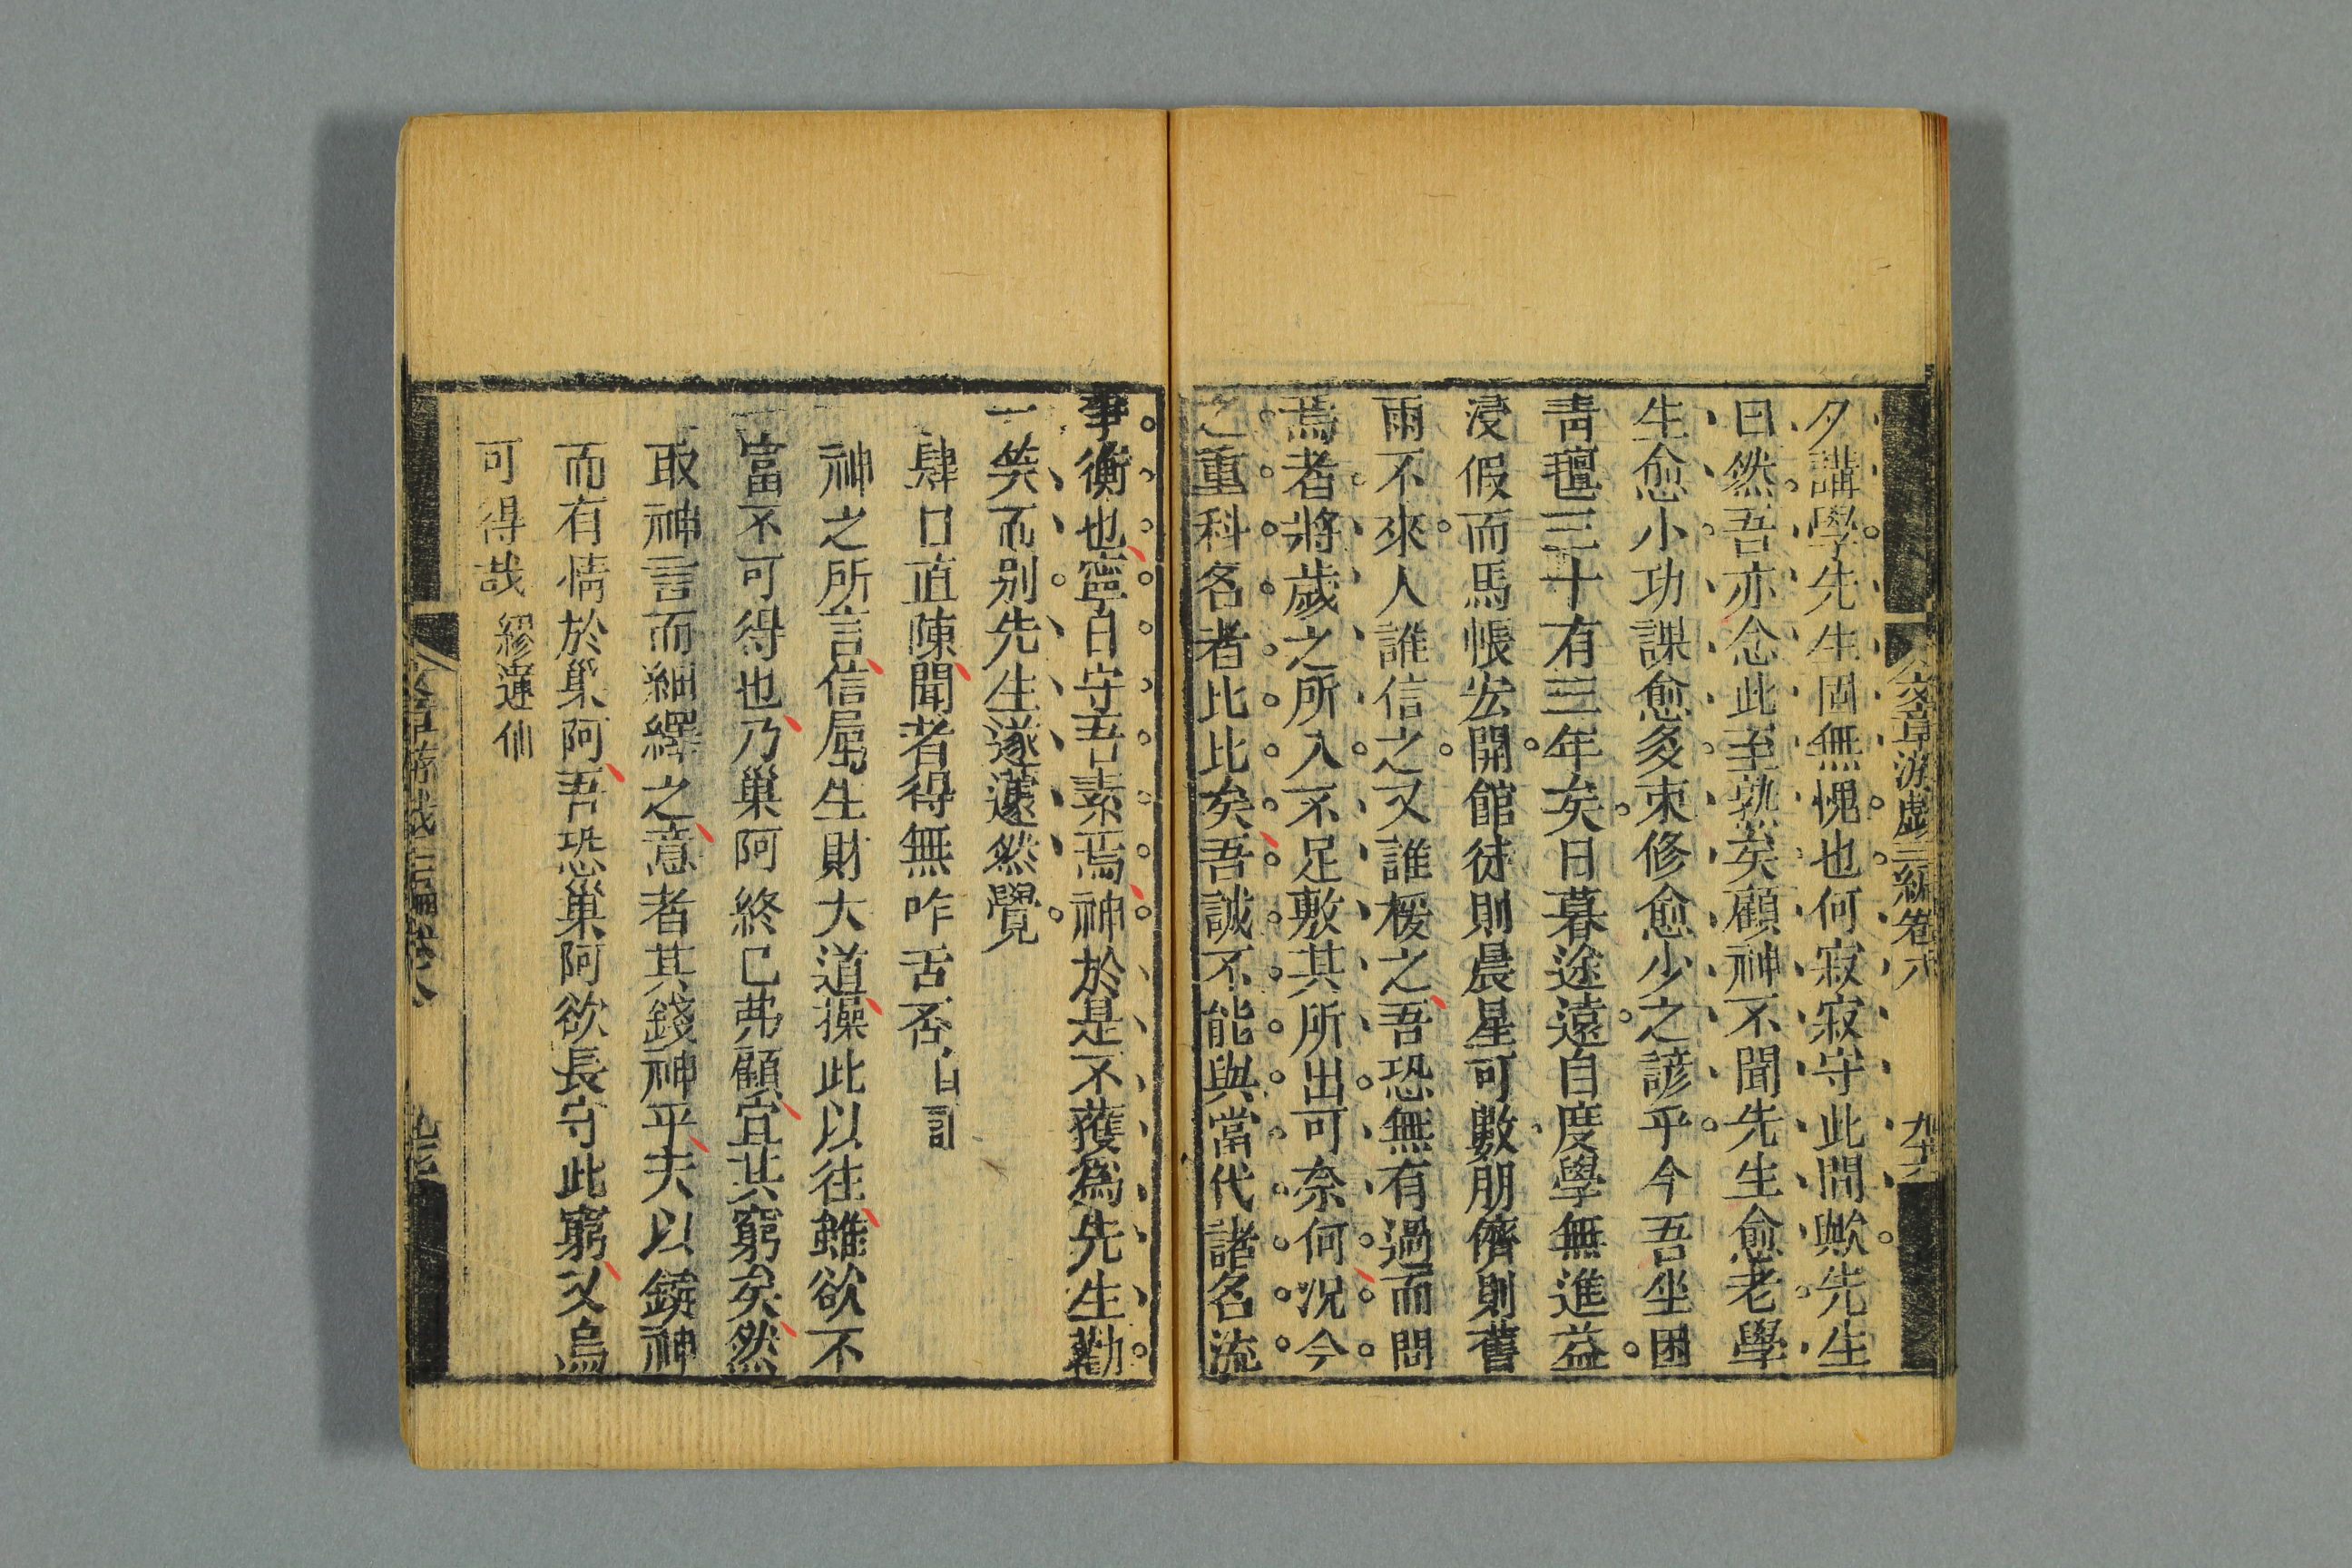 文章游戲三編卷八
九十六
夕講學先生固無愧也何寂寂守此問歟先生
曰然吾亦念此至熟矣顧神不聞先生愈老學
生愈小功課愈多束修愈少之諺乎今吾坐困
青氊三十有三年矣日暮途遠自度學無進益
浸假而馬帳宏開館徒則晨星可數朋儕則舊
雨不來人誰信之又誰援之吾恐無有過而問
焉者將歲之所入不足敷其所出可奈何况今
之重科名者比比矣吾誠不能與當代諸名流
爭衡也寧自守吾素焉神於是不獲爲先生勸
一笑而别先生遂蘧然覺
肆口直陳聞者得無咋舌否自記
神之所言信屬生財大道操此以往雖欲不
富不可得也乃巢阿終已弗顧宜其窮矣然
取神言而細繹之意者其錢神乎夫以錢神
而有情於巢阿吾恐巢阿欲長守此窮又烏
可得哉繆蓮仙